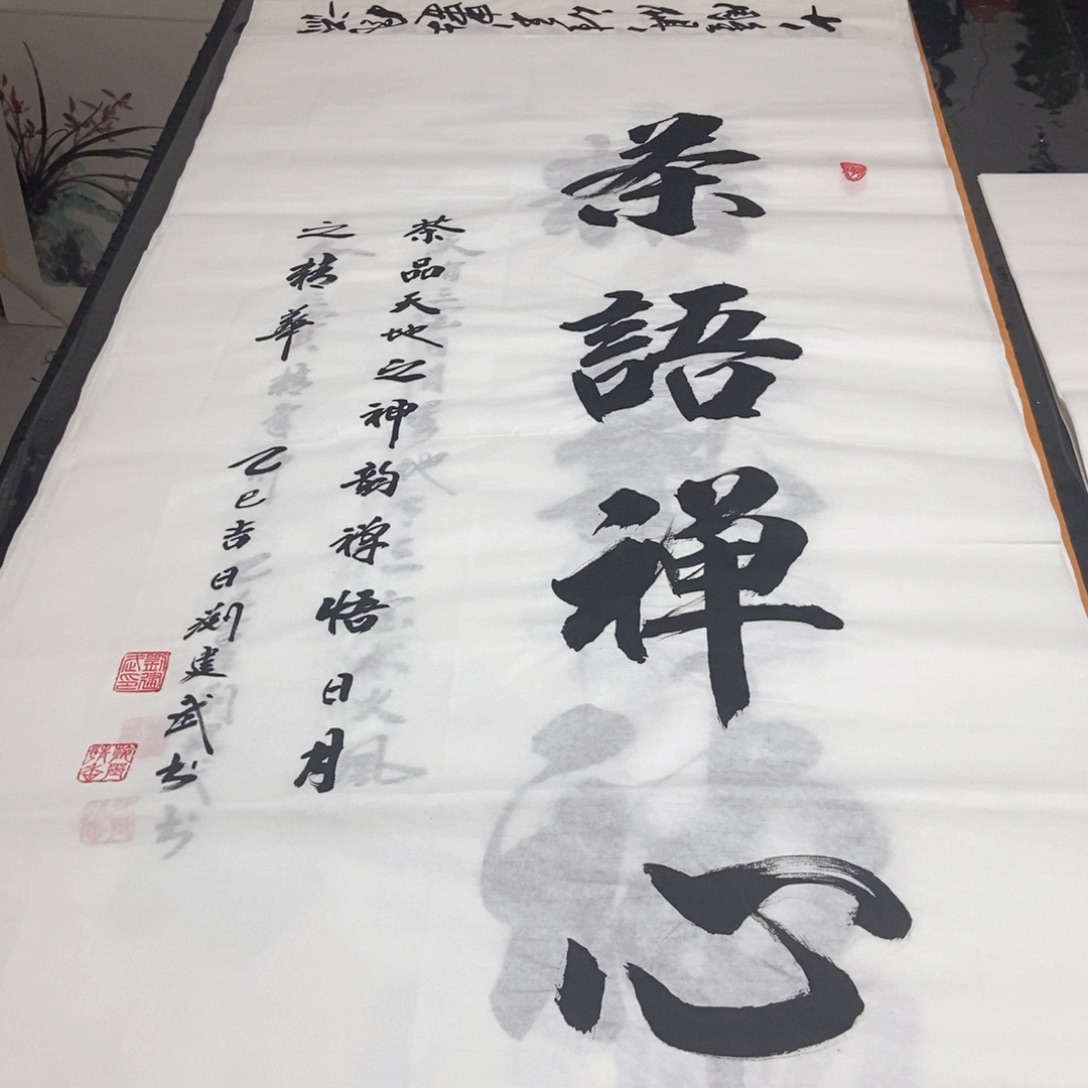 茶語禅心
茶品天地之神韵禅悟日月
之精華
乙巳吉日劉建武书